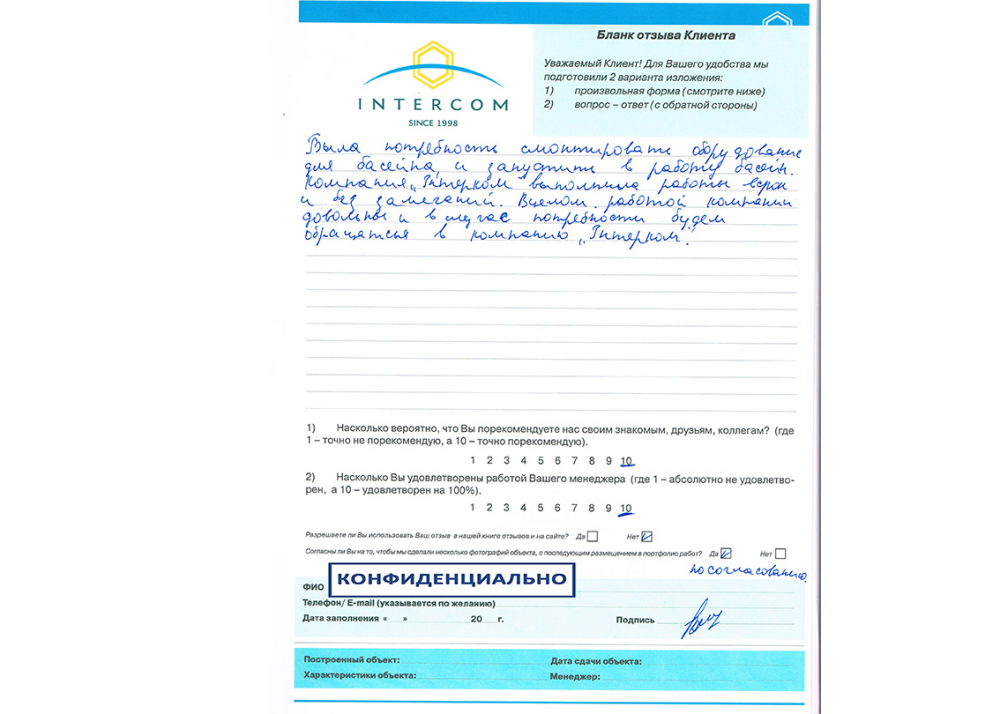 Бланк отзыва Клиента
Уважаемый Клиент! Для Вашего удобства мы
подготовили 2 варианта изложения:
1) произвольная форма (смотрите ниже)
2) вопрос – ответ (с обратной стороны)
INTERCOM
SINCE 1998
Была потребность смонтировать оборудование
для басейна, и запустить в работу басейн.
Компания „Інтерком" выполнила работы в срок
и без замечаний. Вцелом работой компании
довольны и в случае потребности будем
обращаться в компанию „Інтерком".
1) Насколько вероятно, что Вы порекомендуете нас своим знакомым, друзьям, коллегам? (где
1 – точно не порекомендую, а 10 – точно порекомендую).
1 2 3 4 5 6 7 8 9 10
2) Насколько Вы удовлетворены работой Вашего менеджера (где 1 – абсолютно не удовлетво-
рен, а 10 – удовлетворен на 100%).
1 2 3 4 5 6 7 8 9 10
Разрешаете ли Вы использовать Ваш отзыв в нашей книге отзывов и на сайте? Да Нет
Согласны ли Вы на то, чтобы мы сделали несколько фотографий объекта, с последующим размещением в портфолио работ? Да Нет
по согласованию.
ФИО КОНФИДЕНЦИАЛЬНО
Телефон/ E-mail (указывается по желанию)
Дата заполнения « » 20 г. Подпись
Построенный объект: Дата сдачи объекта:
Характеристики объекта: Менеджер: